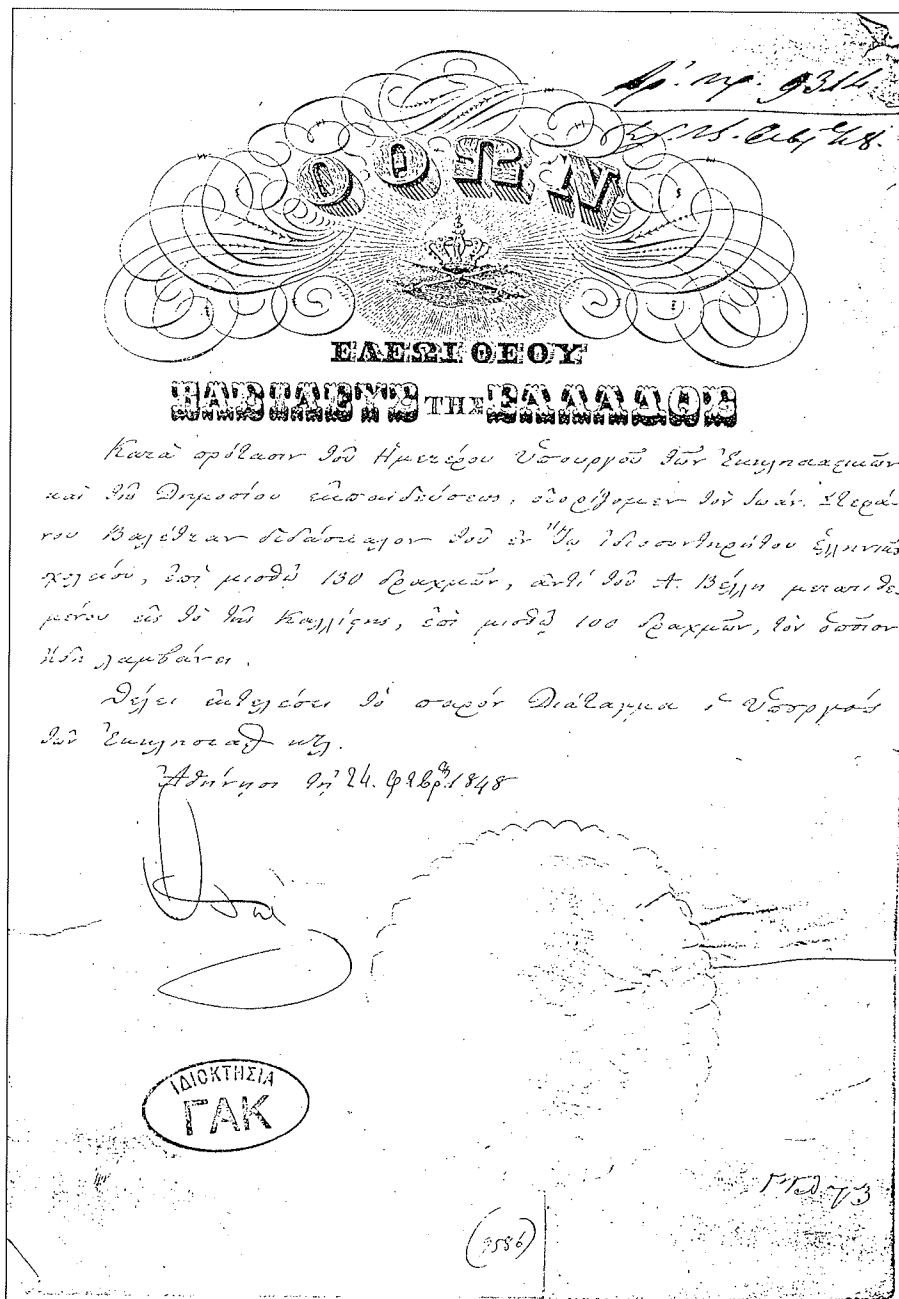 Ἀρ. πρ. 9314
ΟΘΩΝ
ΕΛΕΩΙ ΘΕΟΥ
ΒΑΣΙΛΕΥΣ ΤΗΣ ΕΛΛΑΔΟΣ
Κατὰ πρότασιν τοῦ Ἡμετέρου Ὑπουργοῦ τῶν Ἐκκλησιαστικῶν
καὶ τῆς Δημοσίου ἐκπαιδεύσεως, διορίζομεν τὸν Ἰωάν. Στεφά-
νου Βαλέτταν διδάσκαλον τοῦ ἐν Ἴῳ ἰδιοσυντηρήτου ἑλληνικοῦ
σχολείου, ἐπὶ μισθῷ 130 δραχμῶν, ἀντὶ τοῦ Α. Βέλλη μετατιθε-
μένου εἰς τὸ τῆς Καλλίστης, ἐπὶ μισθῷ 100 δραχμῶν, τὸν ὁποῖον
ἤδη λαμβάνει.
Θέλει ἐκτελέσει τὸ παρὸν Διάταγμα ὁ Ὑπουργὸς
τῶν Ἐκκλησιαστ. κτλ.
Ἀθήνησι τῇ 24. φεβρ. 1848
ΙΔΙΟΚΤΗΣΙΑ
ΓΑΚ
(9586)